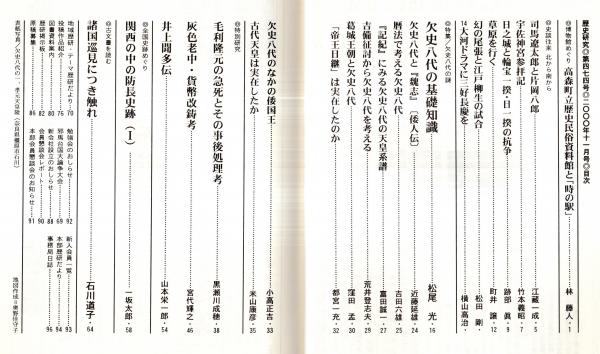 歴史研究◎第四七四号◎二〇〇〇年十一月号◎目次
◎博物館めぐり 高森町立歴史民俗資料館と「時の駅」 林 藤人・1
◎史談往来 北から南から
司馬遼太郎と片岡八郎 江蔵一成・5
宇佐神宮参拝記 竹本義昭・7
日之城と輪宝一揆・日一揆の抗争 跡部 眞・9
草原を行く 町井 譲・12
幻の尾張と江戸柳生の試合 松田 剛・
14大河ドラマに三好長慶を 横山高治・
◎特集/欠史八代の謎
欠史八代の基礎知識 松尾 光・16
欠史八代と『魏志』(倭人伝) 近藤延雄・24
暦法で考える欠史八代 吉田六雄・25
『記紀』にみる欠史八代の天皇系譜 富田誠一・27
吉備征討から欠史八代を考える 荒井登志夫・29
葛城王朝と欠史八代 窪田 孟・30
「帝王日継」は実在したのか 都宮一充・32
欠史八代のなかの倭国王 小高正吉・33
古代天皇は実在したか 米山康彦・35
◎特別研究
毛利隆元の急死とその事後処理考 黒瀬川成穂・38
灰色老中・貨幣改鋳考 宮代輝之・46
井上聞多伝 山本栄一郎・54
◎全国史跡めぐり
関西の中の防長史跡(Ⅰ) 一坂太郎・58
◎古文書を読む
諸国巡見につき触れ 石川道子・64
地域歴研・テーマ歴研だより・70
投稿作品紹介……75
図書資料案内……76
歴研掲示板……80
原稿募集……82
86
勉強会のおしらせ……92
邪馬台国大論争大会……69
新会社設立のおしらせ……88
会員懇談会レポート……90
本部会員懇談会のお知らせ……91
新入会員一覧……93
本部歴研だより……94
事務局日誌……96
表紙写真/欠史八代の一・孝元天皇陵(奈良県橿原市石川)
地図作成=奥野佳守子